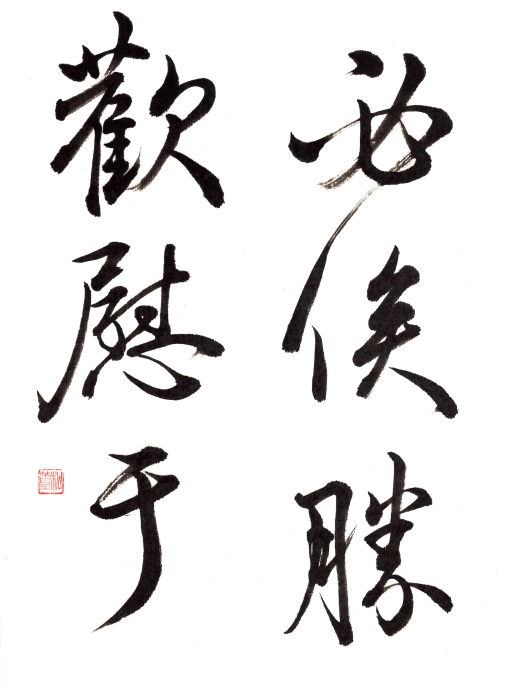 必俟勝
歡慰于